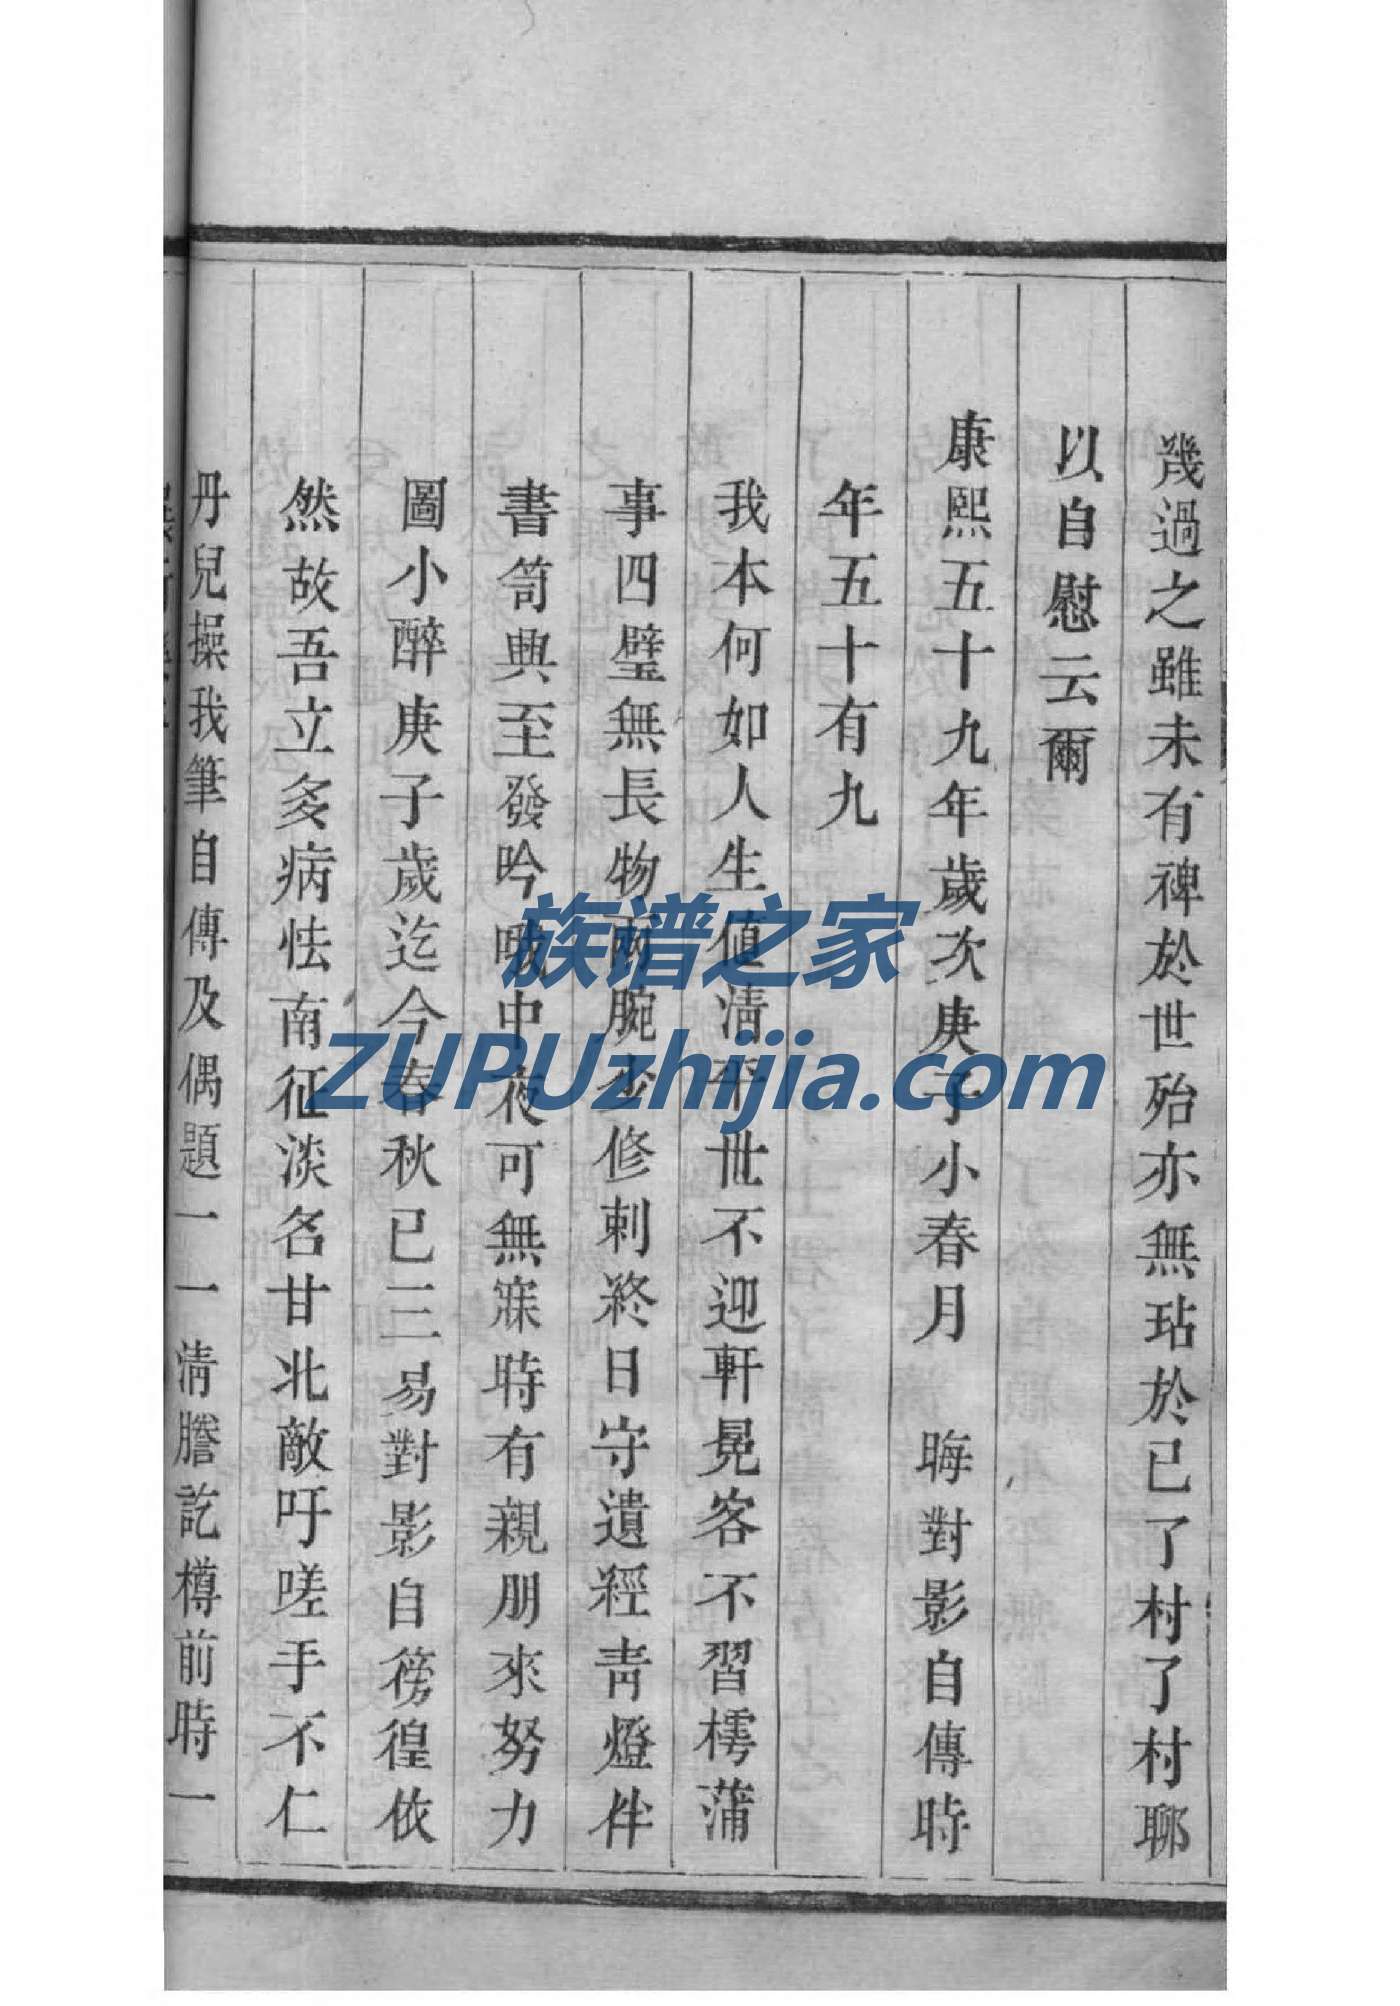 幾過之雖未有裨於世殆亦無玷於已了村了村聊
以自慰云爾
康熙五十九年歲次庚子小春月 晦對影自傳時
年五十有九
我本何如人生値清平世不迎軒冕客不習樗蒲
事四璧無長物兩腕少修剌終日守遺經青燈伴
書笥典至發吟哦中夜可無寐時有親朋來努力
圖小醉庚子歲迄今春秋已三易對影自徬徨依
然故吾立多病怯南征淡名甘北敵吁嗟手不仁
丹兒操我筆自傳及偶題一一清謄訖樽前時一
族谱之家
ZUPUzhijia.com